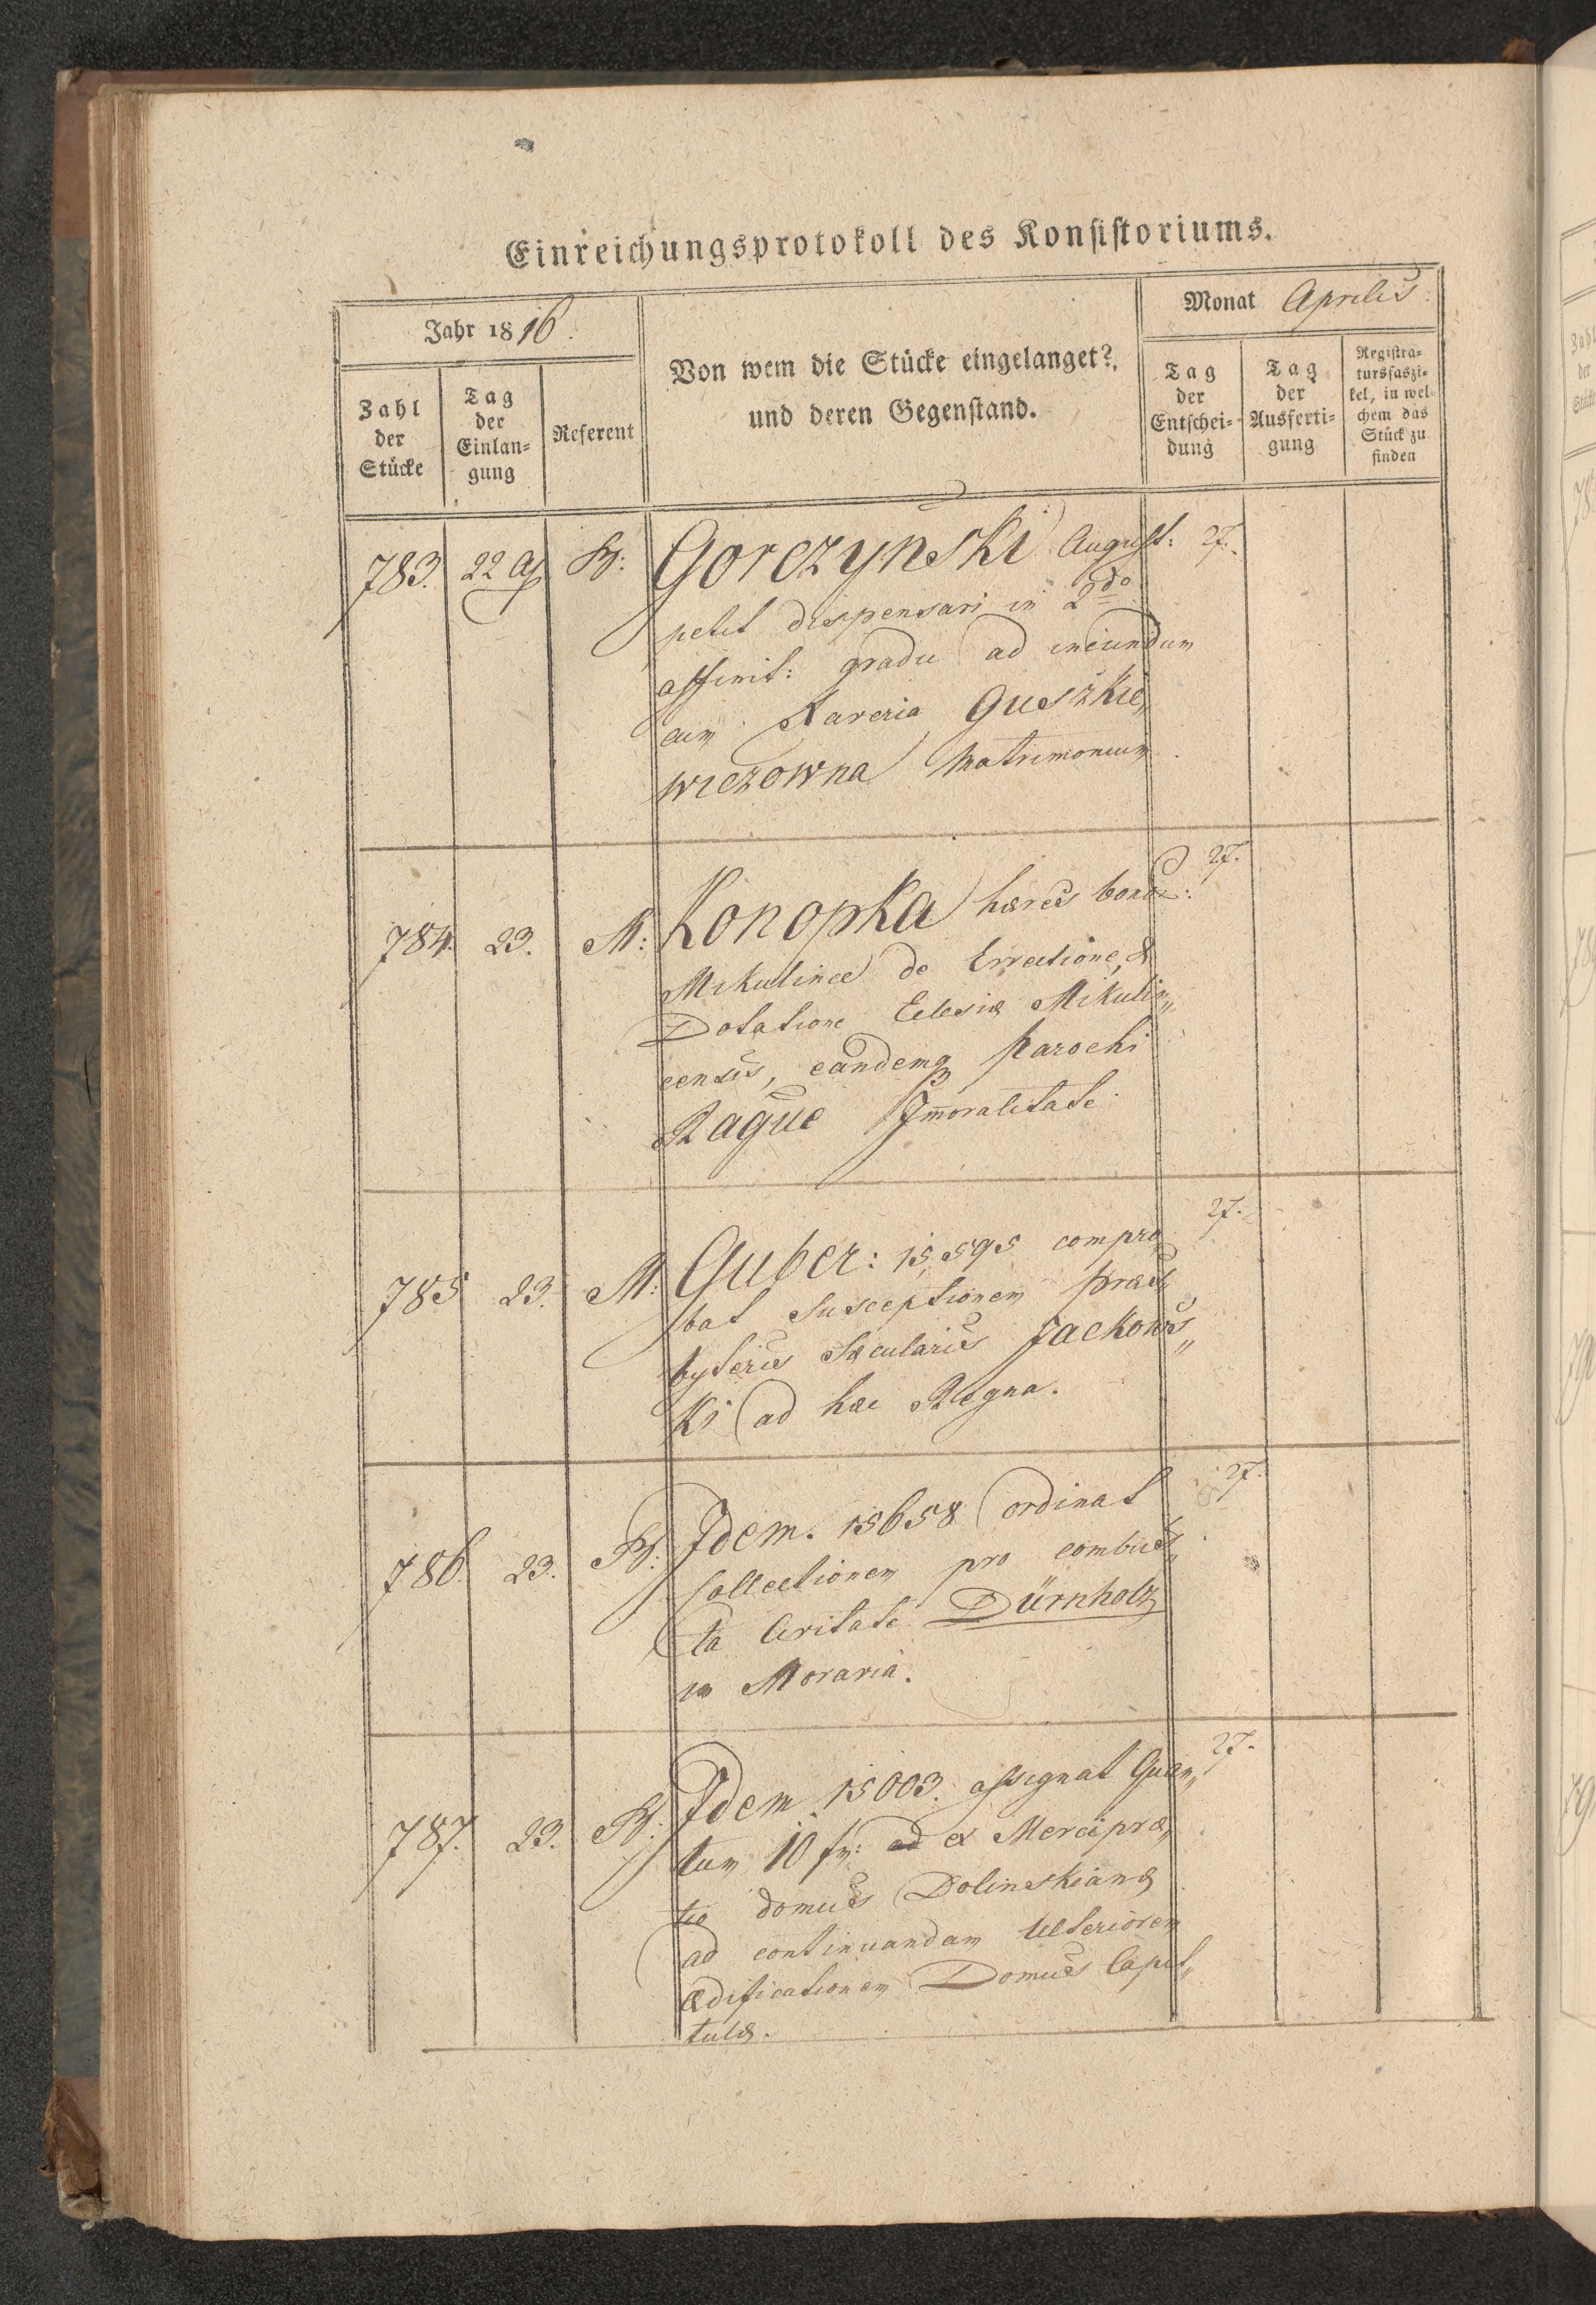 Einreichungsprotokoll des Konsistoriums.
Jahr 1816.
Monat Aprilis
Von wem die Stücke eingelanget?
und deren Gegenstand.
Zahl
der
Stücke
Tag
der
Einlan=
gung
Referent
Tag
der
Entschei=
dung
Tag
der
Ausferti=
gung
Registra=
tursfaszi=
kel, in wel=
chem das
Stück zu
finden
783. 22 Gorczynski August: 27.
petit dispensari in 2do
affinit: gradu ad ineundum
cum Xaveria Guszkie„
wiczowna Matrimonium.
784. 23. M: Konopka hæres bonor: 27.
Mikulince de Errectione, &
Dotatione Eclesiæ Mikulin„
censis, eandemq Parochi
Rague Immoralitate.
785 23. M: Guber: 15,595 compro„ 27.
bat Susceptionem Præs„
byteris Sæcularis Jackows„
Ki ad hæc Regna.
786. 23. Idem. 15658 ordinat 27.
Collectionem pro combus„
ta Civitate Dürnholz
in Moravia.
787. 23. Idem 15003. assignat Quan„ 27.
tum 10 fr: ad ex Mercipræ„
tio domus Dolinskianæ
ad continuandam Ulteriorem
Ædificationem Domus Capit„
tulæ.